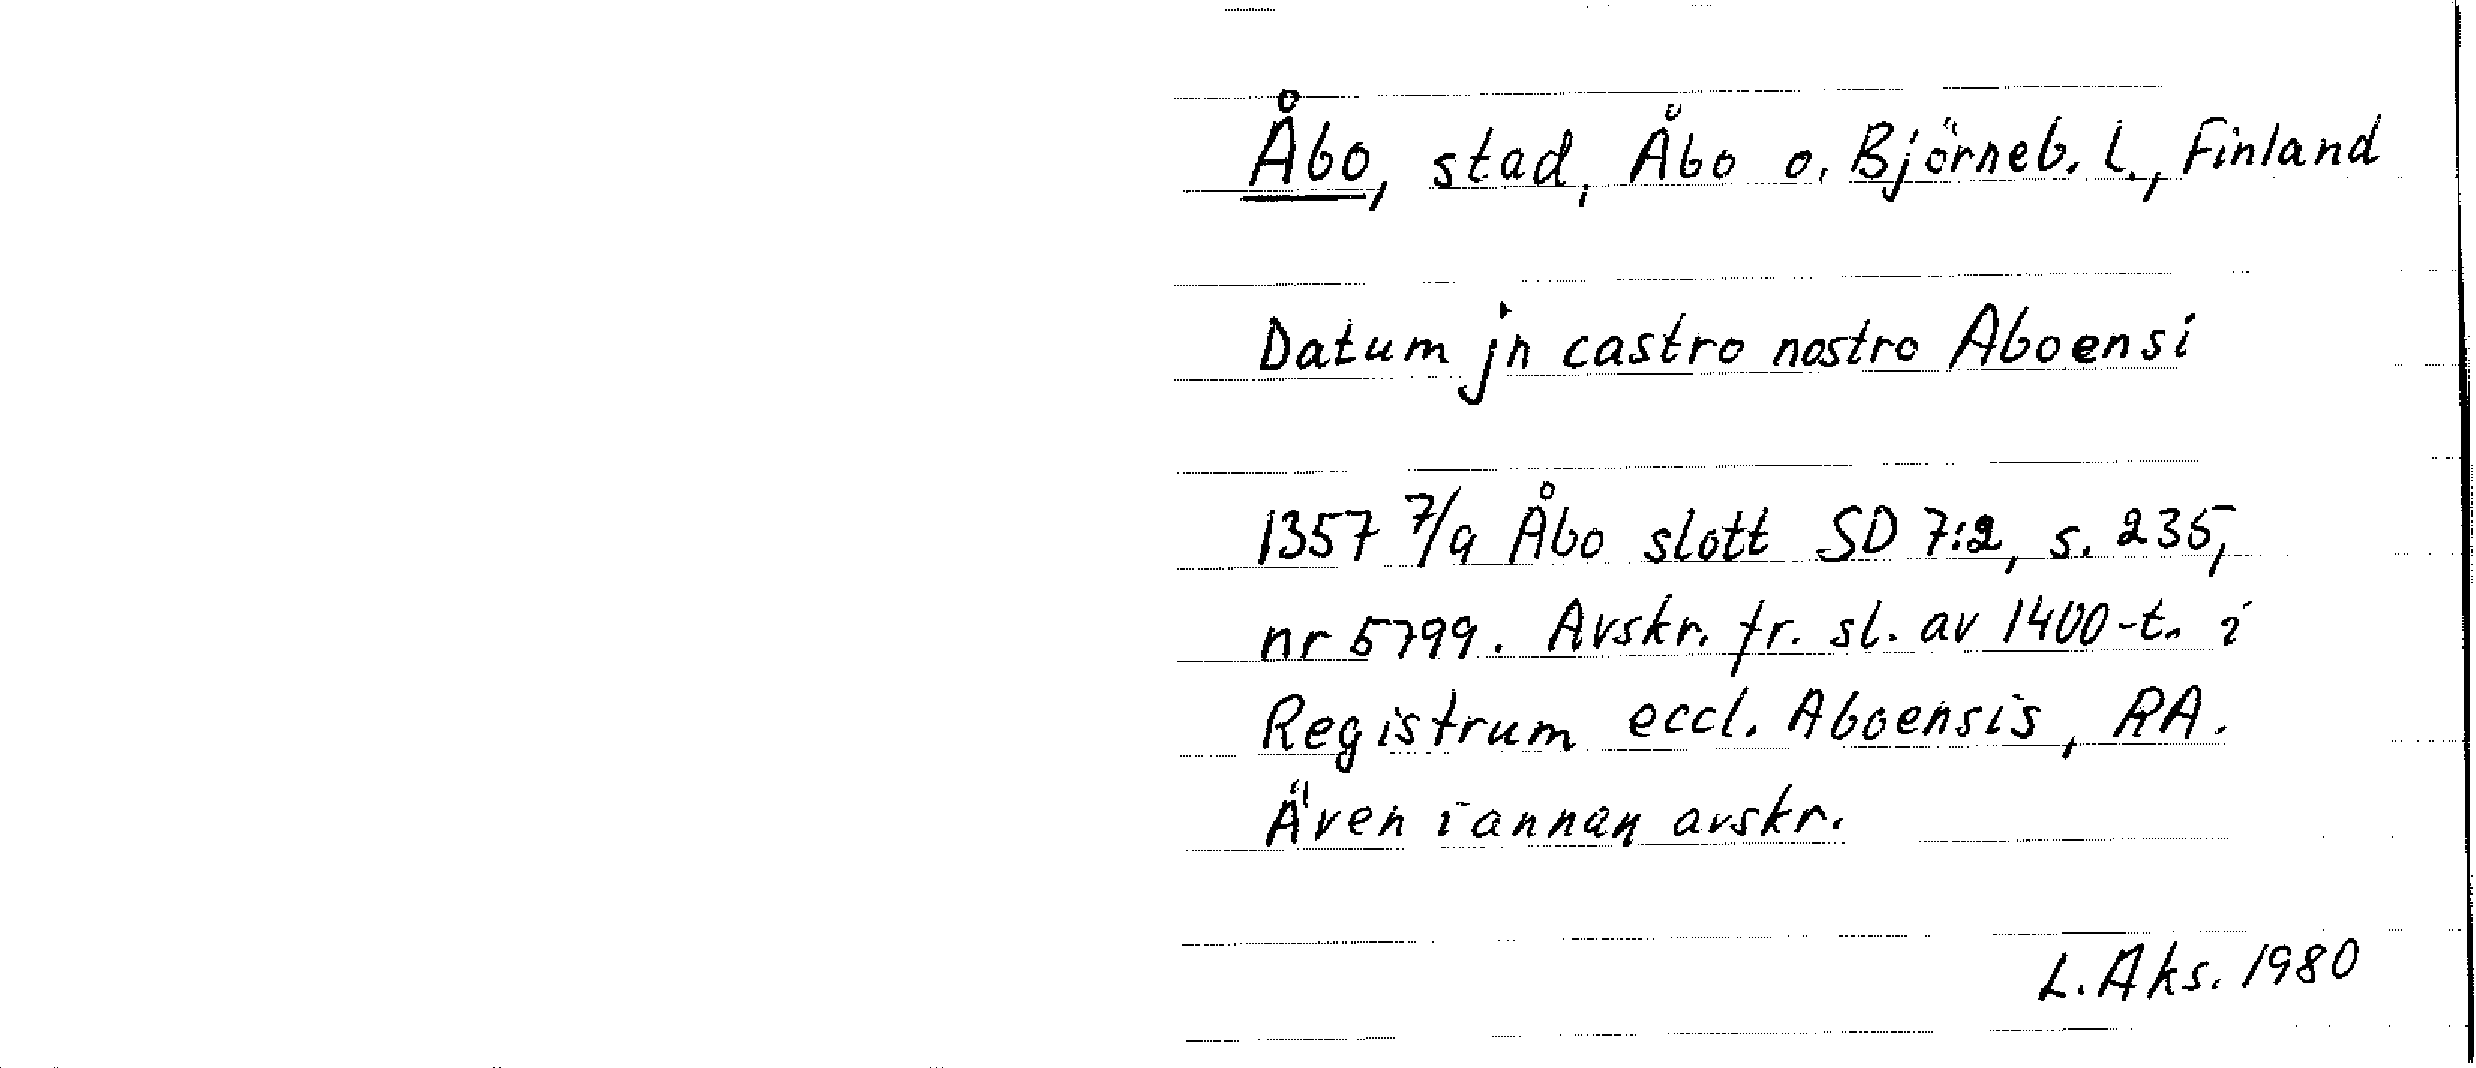 Åbo, stad, Åbo o. Björneb. l., Finland
Datum jn castro nostro Aboensi
1357 7/9 Åbo slott SD 7:2, s. 235,
nr 5799. Avskr. fr. sl. av 1400-t. i
Registrum eccl. Aboensis, RA.
Även i annan avskr.
L. Aks. 1980